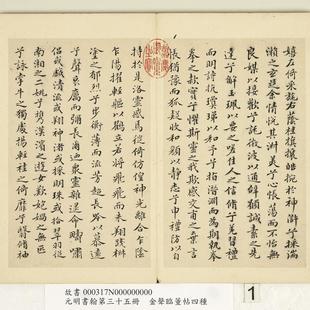 嬉左倚采旄右蔭桂旗攘皓腕於神滸兮採湍
瀨之玄芝余情悅其淑美兮心悵蕩而不怡無
良媒以接歡兮託微波以通辭願誠素之先
達兮解玉珮以要之嗟佳人之信脩兮羌習禮
而明詩抗瓊珶以和予兮指潛淵而為期執
拳之款實兮懼斯靈之我欺感交甫之棄言
悵猶豫而狐疑收和顏以靜志兮申禮防以自
持於是洛靈感焉徙倚仿偟神光離合乍陰
乍陽擢輕軀以鶴立若將飛而未翔踐椒
塗之郁烈兮步蘅薄而流芳超長吟以慕遠
兮聲哀厲而彌長爾迺衆靈雜遝命儔嘯
侶或戲清流或翔神渚或採明珠或拾翠羽從
南湘之二姚兮攜漢濱之游女歎媧之無匹
兮詠牽牛之獨處揚輕袿之倚靡兮翳脩袖
故書 000317N000000000
元明書翰第三十五冊 金聲臨董帖四種
1